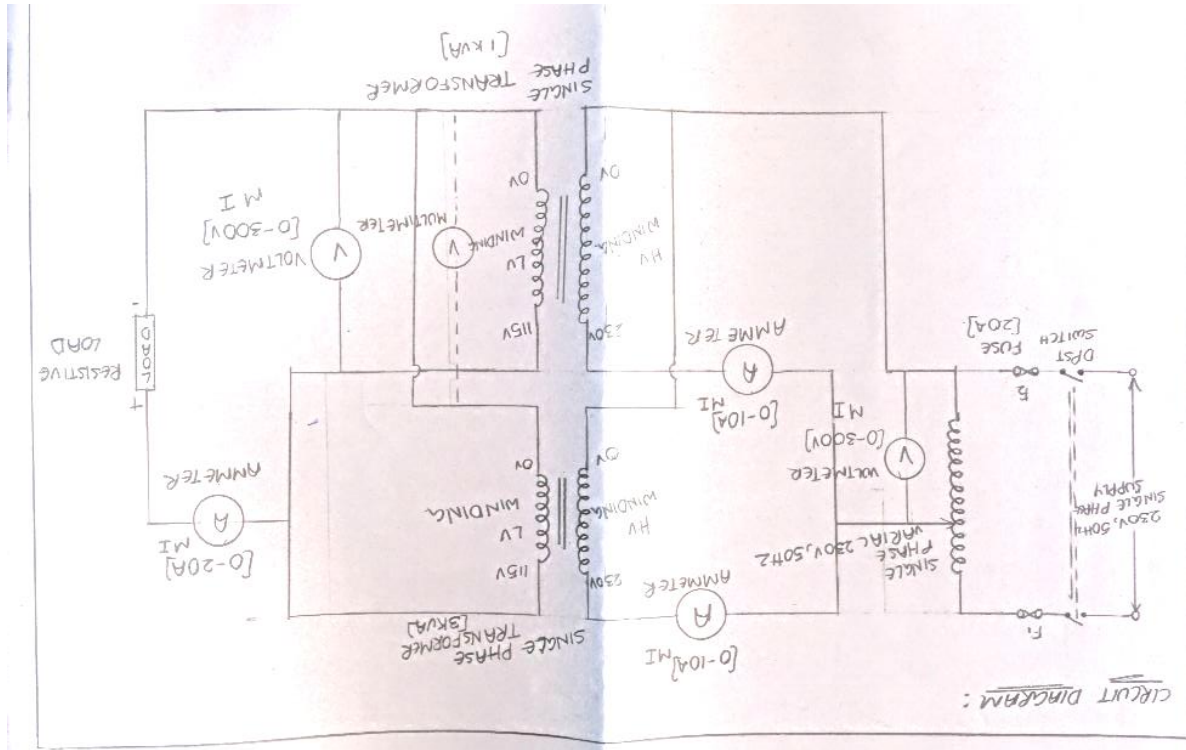 CIRCUIT DIAGRAM :
F1
230V, 50HZ
SINGLE PHASE
SUPPLY
DPST
SWITCH
F2
FUSE
[20A]
SINGLE
PHASE
VARIAC 230V, 50HZ
V
VOLTMETER
[0-300V]
MI
[0-10A] MI
A
AMMETER
[0-10A]
MI
A
AMMETER
SINGLE PHASE
TRANSFORMER
[3KVA]
230V
HV
WINDING
0V
115V
LV
WINDING
0V
230V
HV
WINDING
0V
115V
LV
WINDING
0V
SINGLE
PHASE
TRANSFORMER
[1 KVA]
V
MULTIMETER
V
VOLTMETER
[0-300V]
MI
[0-20A]
MI
A
AMMETER
+
LOAD
-
RESISTIVE
LOAD